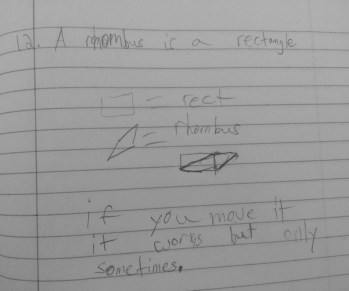 12. A rhombus is a rectangle
= rect
= rhombus
if you move it
it works but only
sometimes.